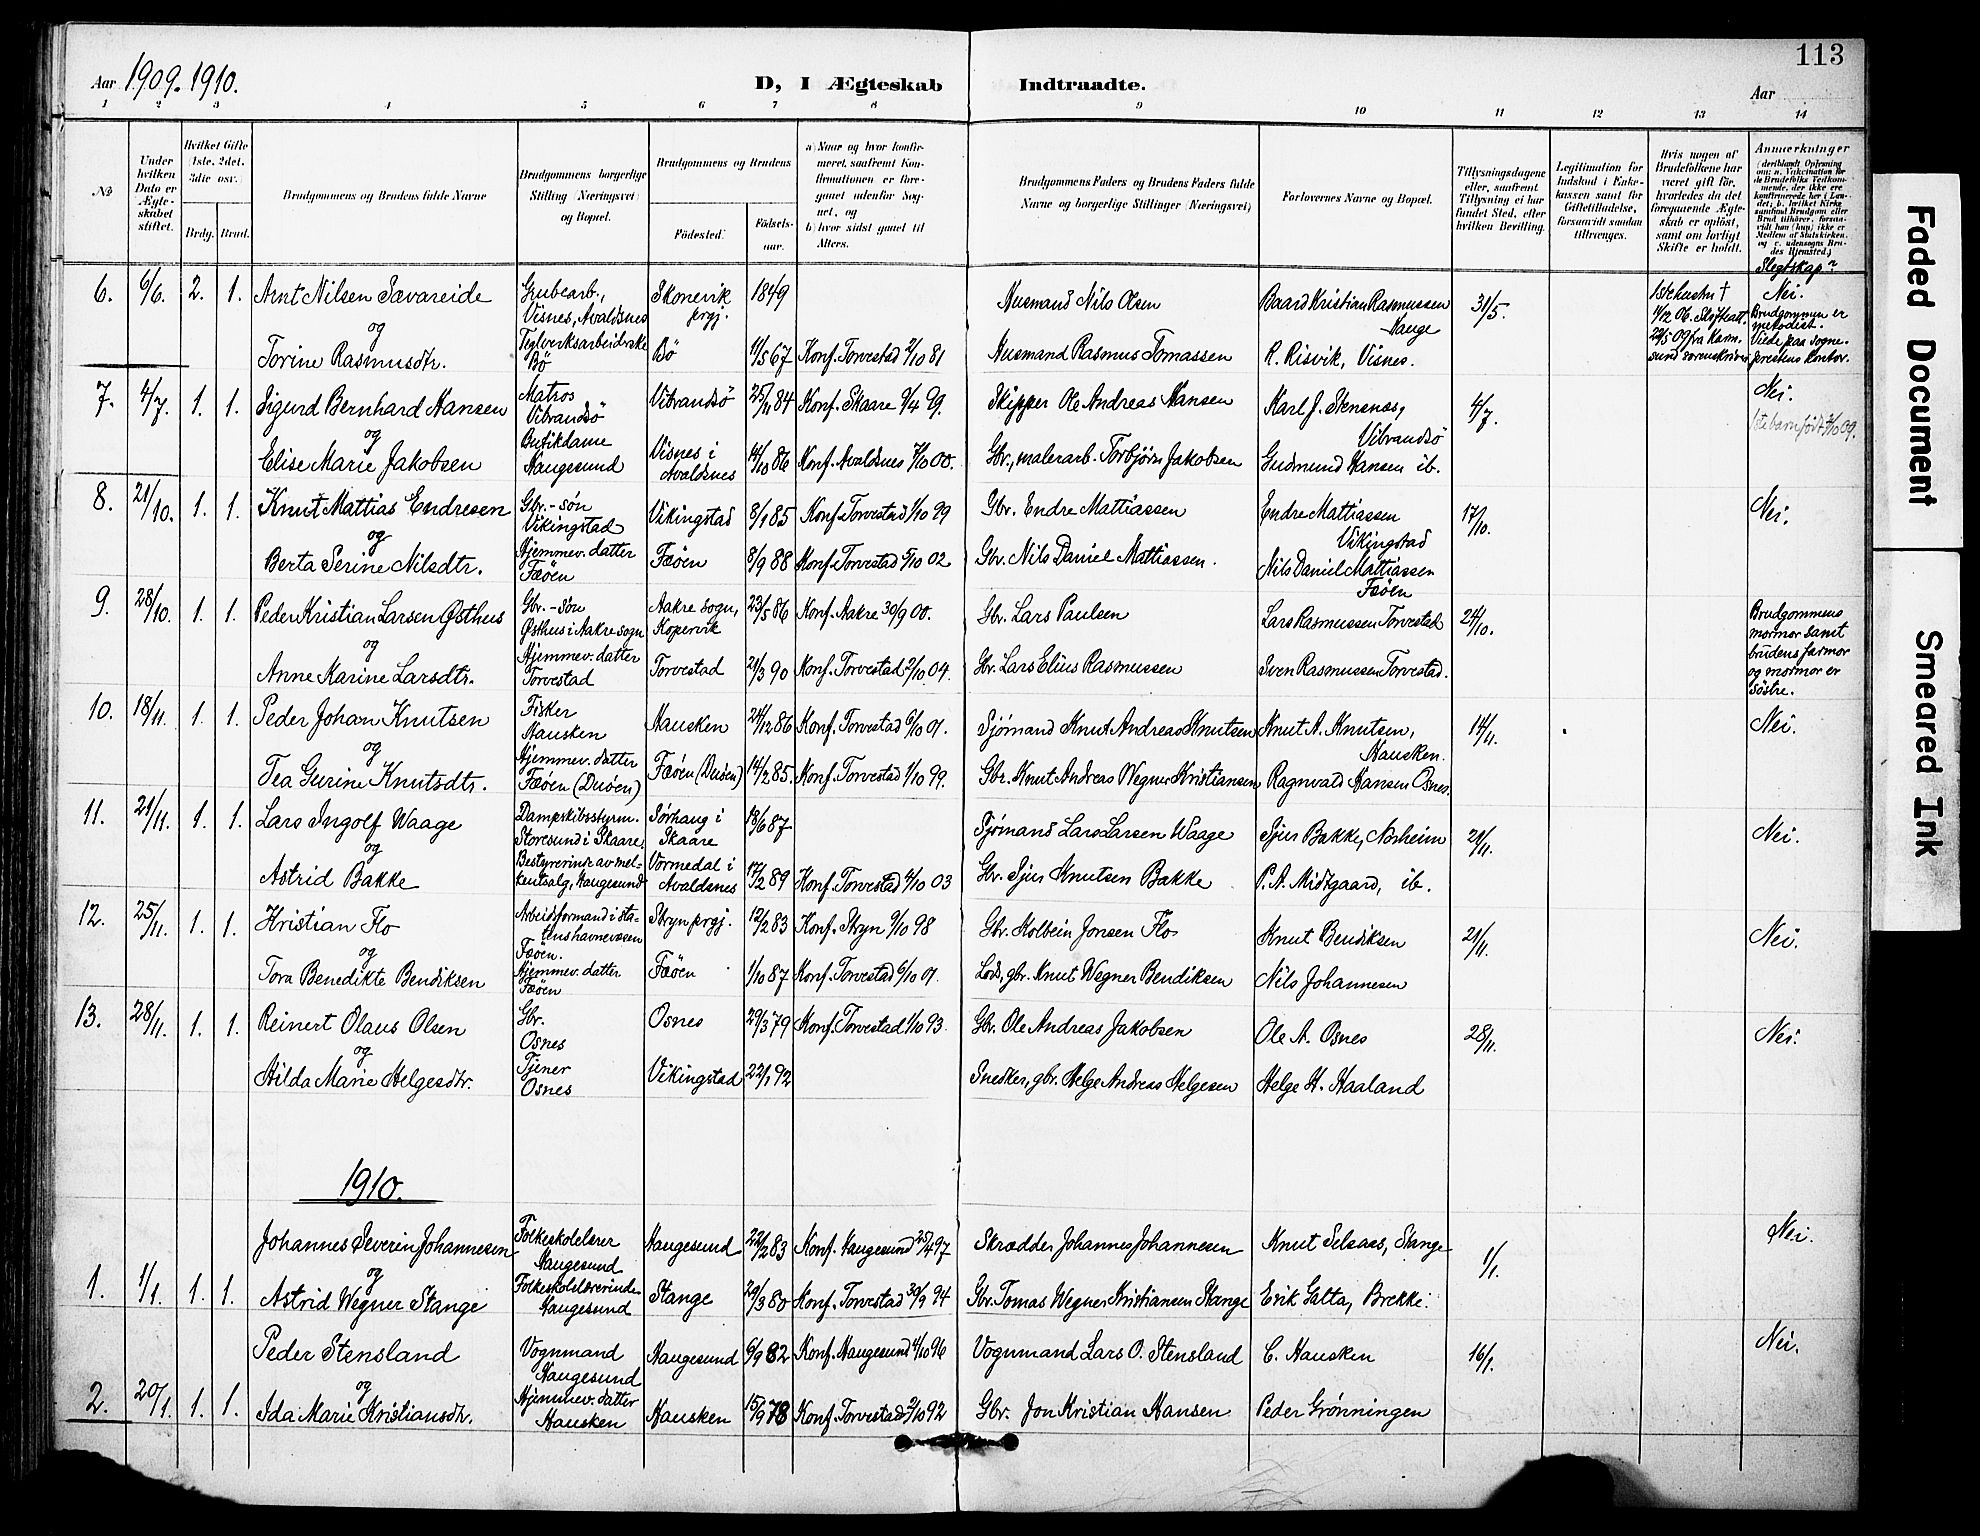 113
Aar 1909. 1910.
D, I Ægteskab Indtraadte.
Aar
1 2 3 4 5 6 7 8 9 10 11 12 13 14
№
Under hvilken Dato er Ægteskabet stiftet.
Hvilket Gifte (1ste, 2det, 3die osv.)
Brdg. Brud.
Brudgommens og Brudens fulde Navne
Brudgommens borgerlige Stilling (Næringsvei) og Bopæl.
Brudgommens og Brudens
Födested.
Födselsaar.
a) Naar og hvor konfirmeret, saafremt Konfirmationen er foregaaet udenfor Sognet, og
b) hvor sidst gaaet til Alters.
Brudgommens Faders og Brudens Faders fulde Navne og borgerlige Stillinger (Næringsvei)
Forlovernes Navne og Bopæl.
Tillysningsdagene eller, saafremt Tillysning ei har fundet Sted, efter hvilken Bevilling.
Legitimation for Indskud i Enkekassen samt for Giftetilladelse, forsaavidt saadan tiltrænges.
Hvis nogen af Brudefolkene har været gift för, hvorledes da det foregaaende Ægteskab er oplöst, samt om lovligt Skifte er holdt.
Anmærkninger
Slegtskap?
6. 6/6. 2. 1. Arnt Nilsen Sævareide
Grubearb., Visnes, Avaldsnes
Skonevik prgj. 1849
Husmand Nils Olsen
Baard Kristian Rasmussen Hauge
31/5.
1ste hustru † 1/12 06. Skifteatt. 22/5 09 fra Karmsund sorenskriver
Nei. Brudgommen er metodist. Viede paa sogneprestens kontor.
og
Torine Rasmusdtr.
Teglverksarbeiderske Bö
Bö 11/5 67 Konf. Torvestad 2/10 81
Husmand Rasmus Tomassen
R. Risvik, Visnes.
7. 4/7. 1. 1. Sigurd Bernhard Hansen
Matros Vibrandsö
Vibrandsö 25/11 84 Konf. Skaare 9/4 99.
Skipper Ole Andreas Hansen
Karl J. Stensnes, Vibrandsö
4/7.
Nei.
1ste barn født 2/10 09.
og
Elise Marie Jakobsen
Butikdame Haugesund
Visnes i Avaldsnes 14/10 86 Konf. Avaldsnes 7/10 00.
Gbr., malerarb. Torbjørn Jakobsen
Gudmund Hansen ib.
8. 21/10. 1. 1. Knut Mattias Endresen
Gbr.-søn Vikingstad
Vikingstad 8/1 85 Konf. Torvestad 1/10 99
Gbr. Endre Mattiassen
Endre Mattiassen Vikingstad
17/10.
Nei.
og
Berta Serine Nilsdtr.
Hjemmev. datter Fæöen
Fæöen 8/9 88 Konf. Torvestad 5/10 02
Gbr. Nils Daniel Mattiassen.
Nils Daniel Mattiassen Fæöen
9. 28/10. 1. 1. Peder Kristian Larsen Østhus
Gbr.-søn Østhus i Aakre sogn
Aakre sogn, Kopervik 23/5 86 Konf. Aakre 30/9 00.
Gbr. Lars Paulsen
Lars Rasmussen Torvestad
24/10.
Brudgommens mormor samt brudens farmor og mormor er söstre.
og
Anne Marine Larsdtr.
Hjemmev. datter Torvestad
Torvestad 21/3 90 Konf. Torvestad 2/10 04.
Gbr. Lars Elius Rasmussen
Sven Rasmussen Torvestad.
10. 18/11. 1. 1. Peder Johan Knutsen
Fisker Hausken
Hausken 24/12 86 Konf. Torvestad 6/10 01.
Sjömand Knut Andreas Knutsen
Knut A. Knutsen, Hausken.
14/11.
Nei.
og
Tea Gurine Knutsdtr.
Hjemmev. datter Fæöen (Duöen)
Fæöen (Duöen) 14/2 85. Konf. Torvestad 1/10 99.
Gbr. Knut Andreas Wegner Kristiansen
Ragnvald Hansen Osnes.
11. 21/11. 1. 1. Lars Ingolf Waage
Dampskibsstyrm. Storesund i Skaare.
Sörhaug i Skaare 18/6 87
Sjömand Lars Larsen Waage
Sjur Bakke, Norheim
21/11.
Nei.
og
Astrid Bakke
Bestyrerinde av melkeutsalg, Haugesund
Vormedal i Avaldsnes 17/2 89 Konf. Torvestad 4/10 03
Gbr. Sjur Knutsen Bakke
P. A. Midtgaard, ib.
12. 25/11. 1. 1. Kristian Flo
Arbeidsformand i statens havnevæsen Fæöen.
Stryn prgj. 12/2 83 Konf. Stryn 9/10 98
Gbr. Kolbein Jonsen Flo
Knut Bendiksen
21/11.
Nei.
og
Tora Benedikte Bendiksen
Hjemmev. datter Fæöen
Fæöen 1/10 87 Konf. Torvestad 6/10 01.
Lods, gbr. Knut Wegner Bendiksen
Nils Johannesen
13. 28/11. 1. 1. Reinert Olaus Olsen
Gbr. Osnes
Osnes 29/3 79 Konf. Torvestad 1/10 93.
Gbr. Ole Andreas Jakobsen
Ole A. Osnes
28/11.
Nei.
og
Hilda Marie Helgesdtr.
Tjener Osnes
Vikingstad 22/1 92
Snedker, gbr. Helge Andreas Helgesen
Helge H. Haaland
1910.
Johannes Severin Johannesen
Folkeskolelærer Haugesund
Haugesund 22/2 83 Konf. Haugesund 25/4 97
Skrædder Johannes Johannesen
Knut Selsaas, Stange
1/1.
Nei.
og
1. 1/1. 1. 1. Astrid Wegner Stange
Folkeskolelærerinde Haugesund
Stange 29/3 80 Konf. Torvestad 30/9 94
Gbr. Tomas Wegner Kristiansen Stange
Erik Saltа, Brekke.
Peder Stensland
Vognmand Haugesund
Haugesund 6/9 82 Konf. Haugesund 4/10 96
Vognmand Lars O. Stensland
C. Hausken
16/1.
Nei.
og
2. 20/1. 1. 1. Ida Marie Kristiansdtr.
Hjemmev. datter Hausken
Hausken 15/9 78 Konf. Torvestad 2/10 92
Gbr. Jon Kristian Hansen
Peder Grönningen
Faded Document
Smeared Ink